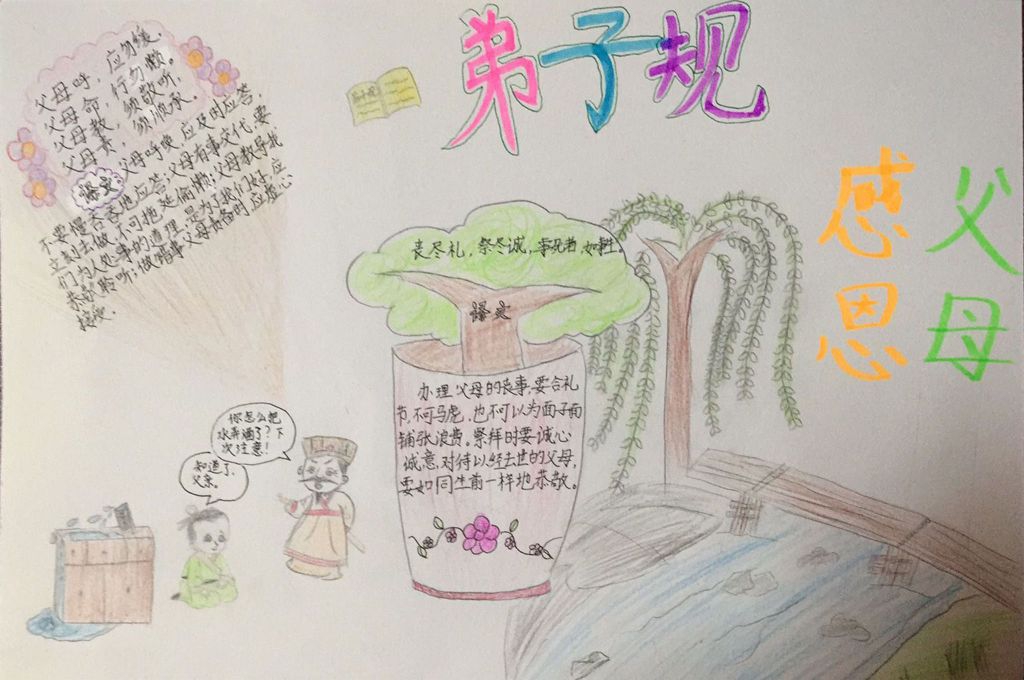 弟子规
感恩
父母
父母呼，应勿缓。
父母命，行勿懒。
父母教，须敬听，
父母责，须顺承。
译文：父母呼唤应及时应答，
不要慢吞吞地应答；父母有事交代，要
立刻去做，不可拖延偷懒；父母教导我
们为人处事的道理，是为了我们好，应
恭敬聆听；做错事父母责备时，应虚心
接受。
丧尽礼，祭尽诚，事死者，如事生。
译文
办理父母的丧事，要合礼
节，不可马虎，也不可以为面子而
铺张浪费。祭拜时要诚心
诚意，对待以经去世的父母，
要如同生前一样地恭敬。
你怎么把
水弄通了？下
次注意！
知道了，
父亲。